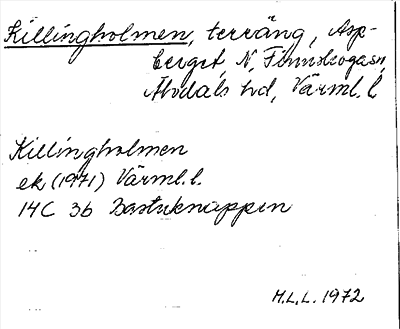 Killingholmen, terräng, Asp-
berget, N, Finnskogasn,
Älvdals hd, Värml. l
Killingholmen
ek (1971) Värml. l.
14C 3b Bastuknappen
M.L.L. 1972